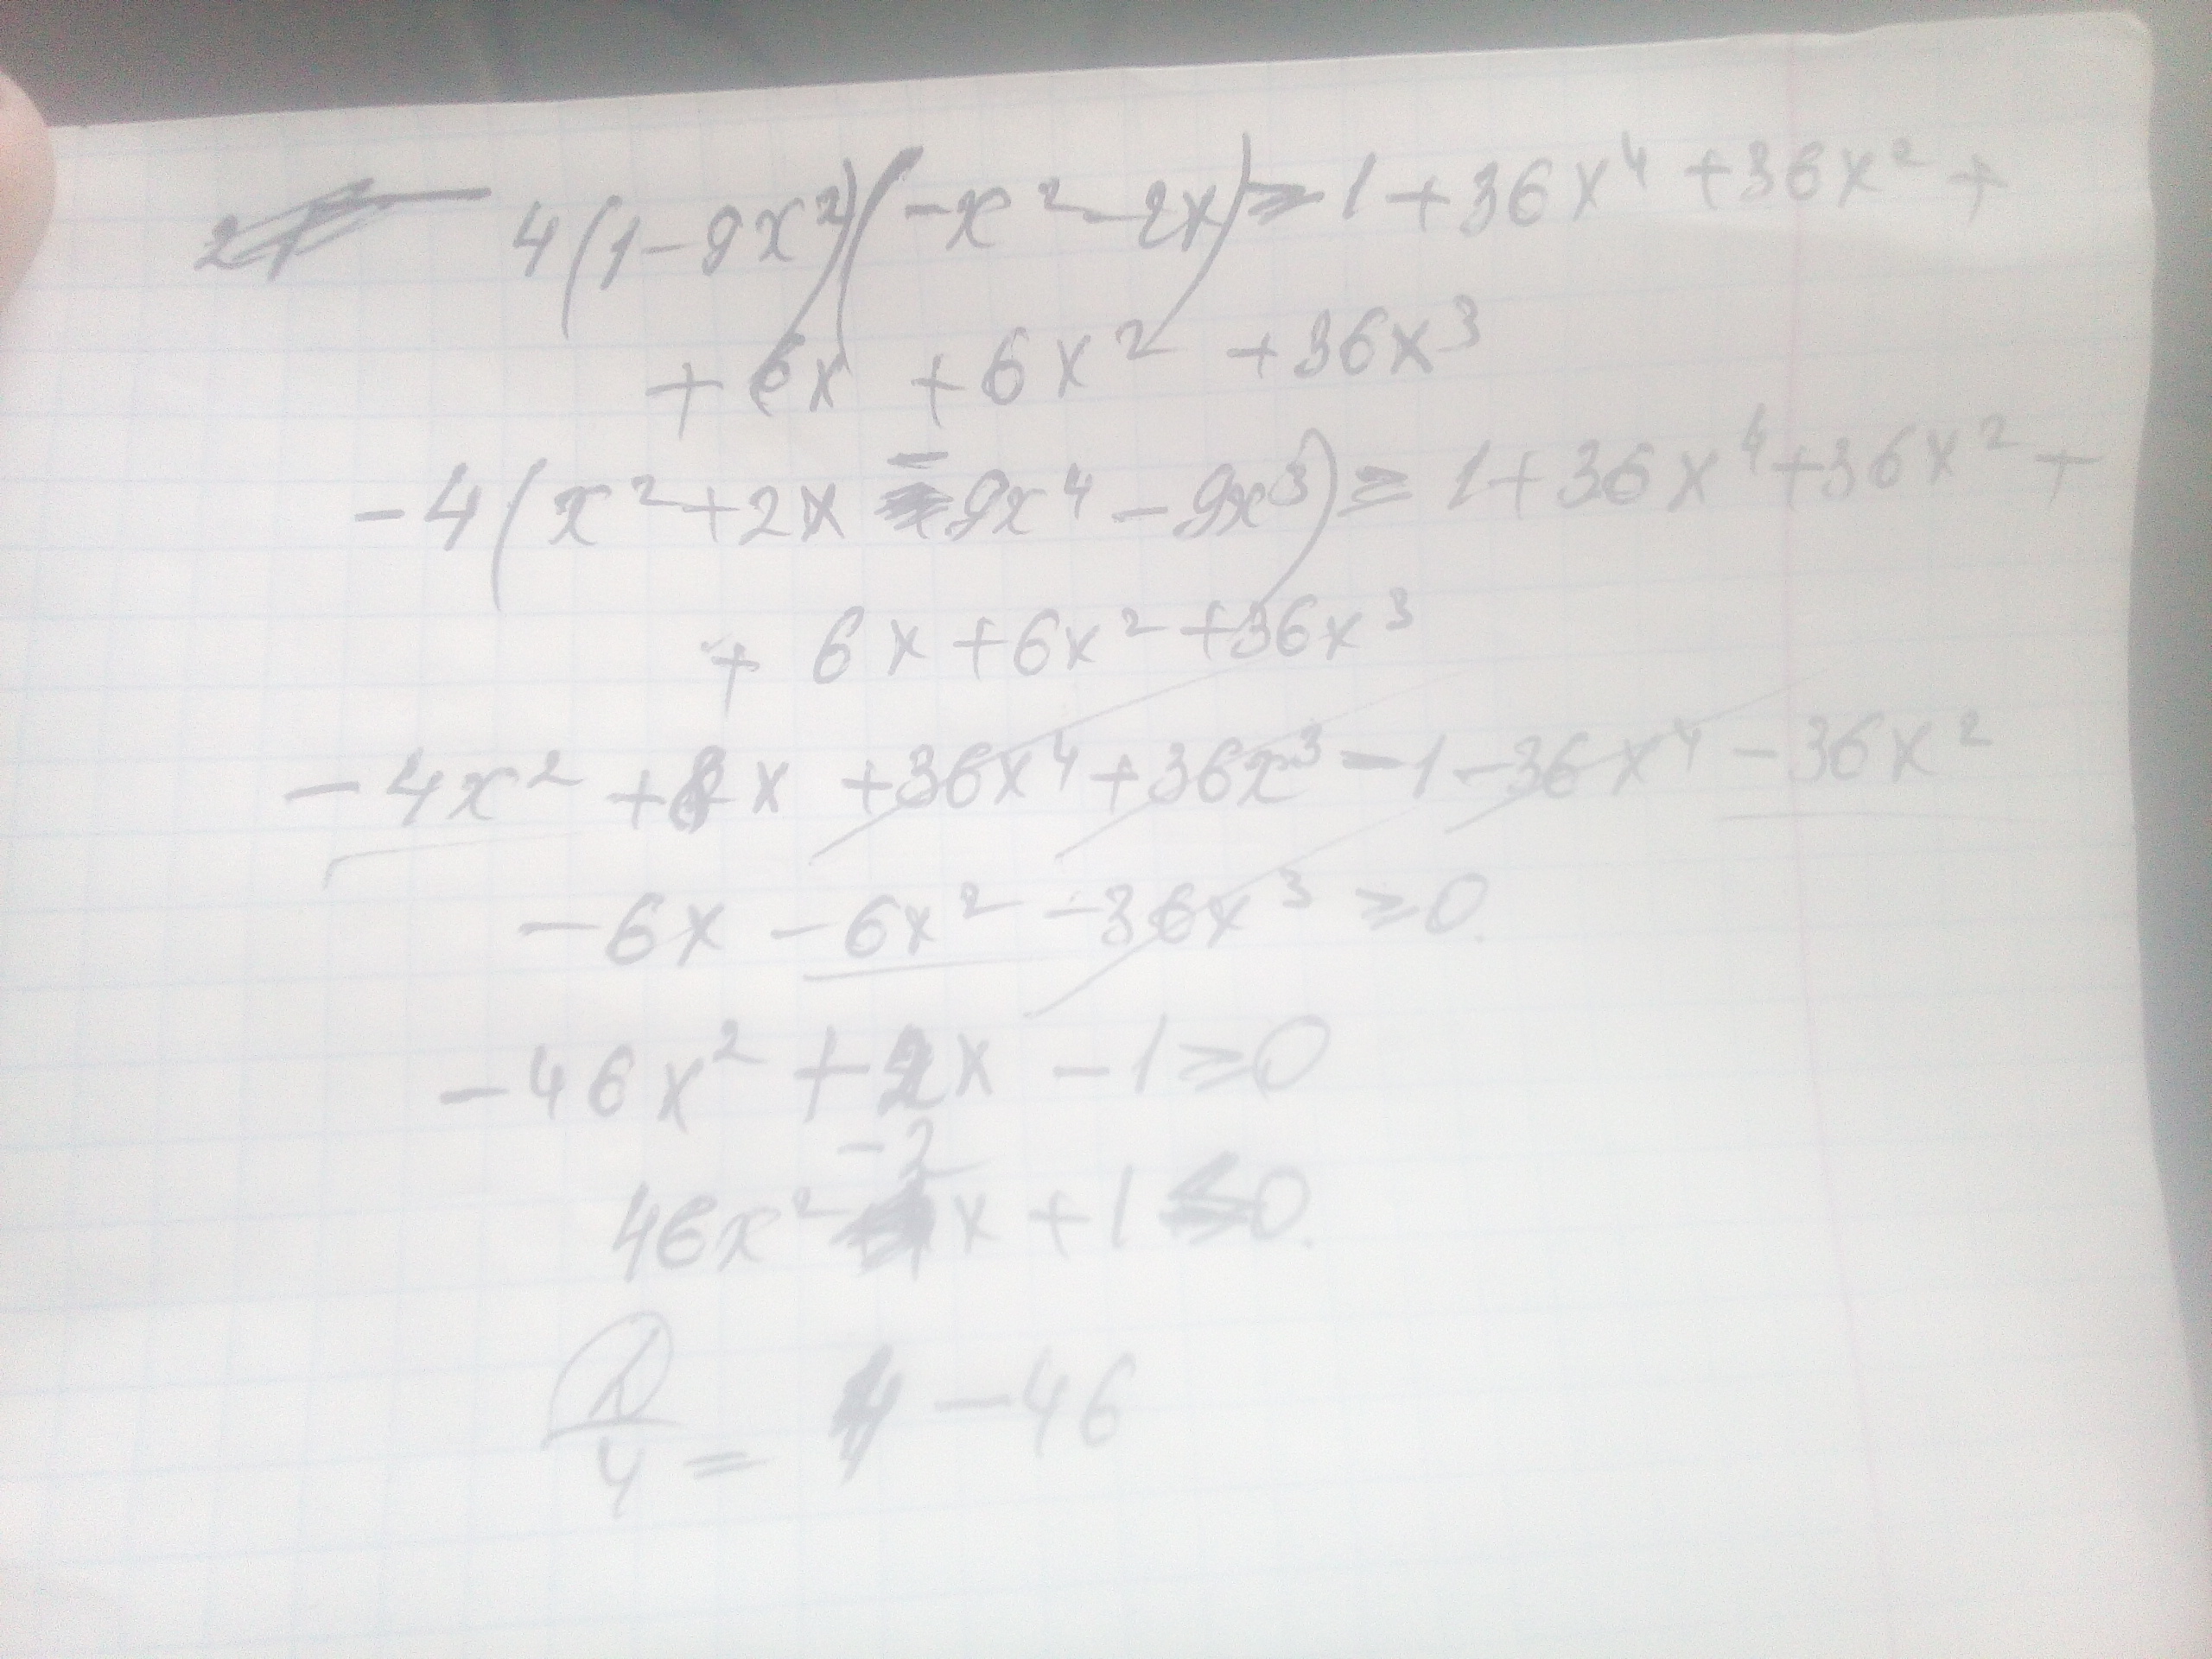 4(1-9x²)(-x²-2x) ≥ 1+36x⁴+36x²+
+6x+6x²+36x³
-4(x²+2x-9x⁴-9x³) ≥ 1+36x⁴+36x²+
+6x+6x²+36x³
-4x²+8x+36x⁴+36x³-1-36x⁴-36x²
-6x-6x²-36x³ ≥ 0
-46x²+2x-1 ≥ 0
-2
46x² x+1 ≤ 0.
D/4 = 1-46